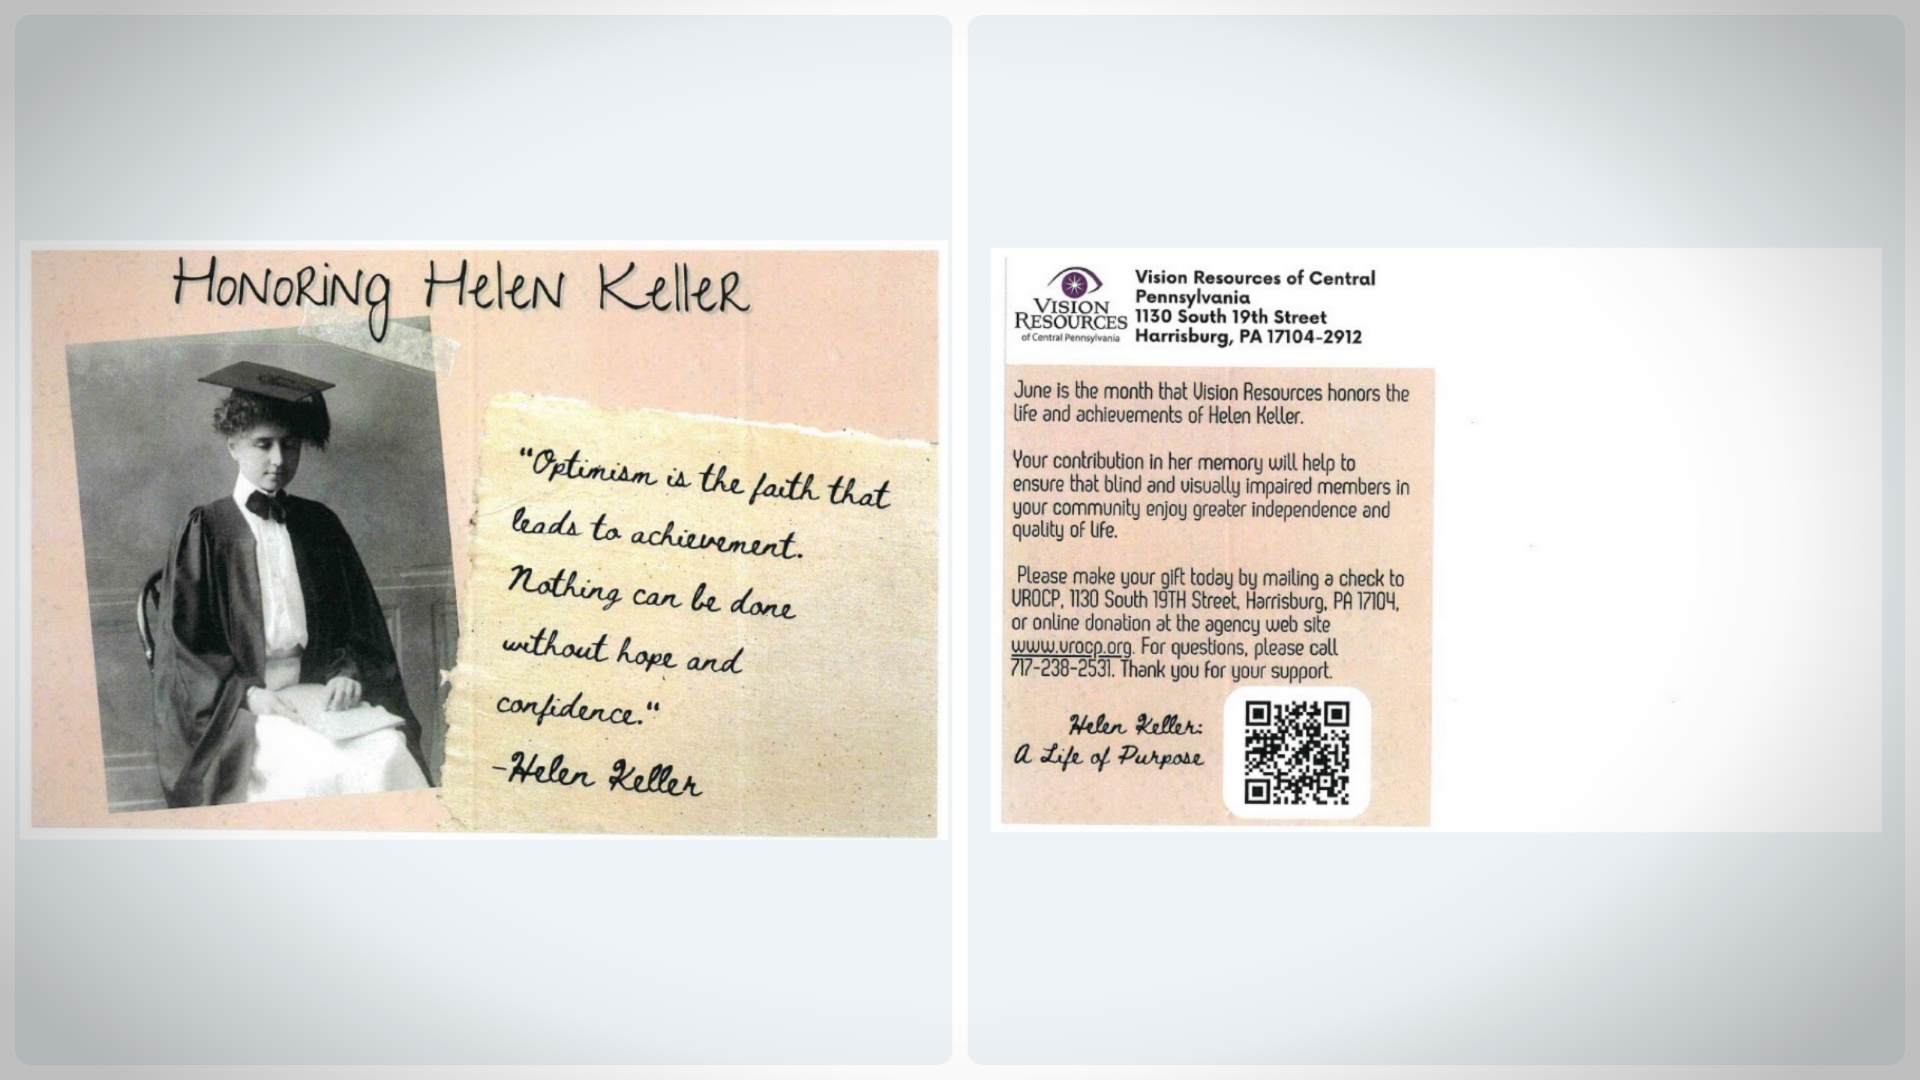 HONORING Helen Keller
"Optimism is the faith that
leads to achievement.
Nothing can be done
without hope and
confidence."
-Helen Keller
VISION
RESOURCES
of Central Pennsylvania
Vision Resources of Central
Pennsylvania
1130 South 19th Street
Harrisburg, PA 17104-2912
June is the month that Vision Resources honors the
life and achievements of Helen Keller.
Your contribution in her memory will help to
ensure that blind and visually impaired members in
your community enjoy greater independence and
quality of life.
Please make your gift today by mailing a check to
VROCP, 1130 South 19TH Street, Harrisburg, PA 17104,
or online donation at the agency web site
www.vrocp.org. For questions, please call
717-238-2531. Thank you for your support.
Helen Keller:
A Life of Purpose